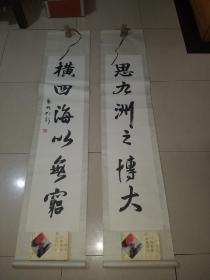 思九洲之博大
横四海以無窮